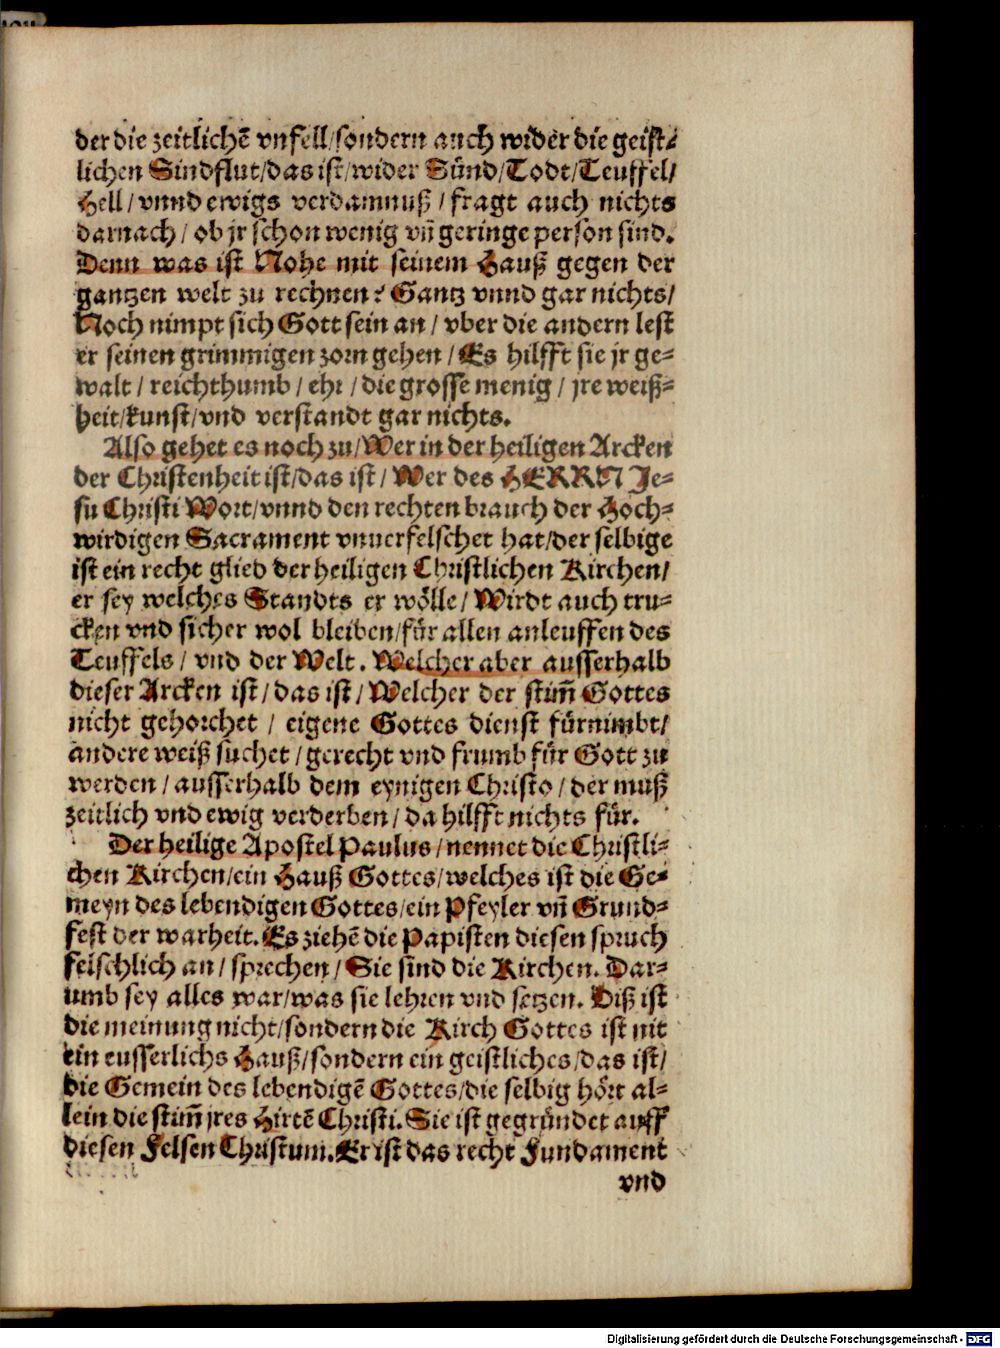 der die zeitlichẽ vnfell/sondern auch wider die geist-
lichen Sindflut/das ist/wider Sünd/Todt/Teuffel/
Hell/vnnd ewigs verdamnuß/fragt auch nichts
darnach/ob jr schon wenig vñ geringe person sind.
Denn was ist Nohe mit seinem Hauß gegen der
gantzen welt zu rechnen? Gantz vnnd gar nichts/
Noch nimpt sich Gott sein an/vber die andern lest
er seinen grimmigen zorn gehen/Es hilfft sie jr ge-
walt/reichthumb/ehr/die grosse menig/jre weiß-
heit/kunst/vnd verstandt gar nichts.
Also gehet es noch zu/Wer in der heiligen Arcken
der Christenheit ist/das ist/Wer des HERRN Je-
su Christi Wort/vnnd den rechten brauch der Hoch-
wirdigen Sacrament vnuerfelschet hat/der selbige
ist ein recht glied der heiligen Christlichen Kirchen/
er sey welches Standts er wölle/Wirdt auch tru-
cken vnd sicher wol bleiben/für allen anleuffen des
Teuffels/vnd der Welt. Welcher aber ausserhalb
dieser Arcken ist/das ist/Welcher der stim̃ Gottes
nicht gehorchet/eigene Gottes dienst fürnimbt/
andere weiß suchet/gerecht vnd frumb für Gott zu
werden/ausserhalb dem eynigen Christo/der muß
zeitlich vnd ewig verderben/da hilfft nichts für.
Der heilige Apostel Paulus/nennet die Christli-
chen Kirchen/ein Hauß Gottes/welches ist die Ge-
meyn des lebendigen Gottes/ein Pfeyler vñ Grund-
fest der warheit. Es ziehẽ die Papisten diesen spruch
felschlich an/sprechen/Sie sind die Kirchen. Dar-
umb sey alles war/was sie lehren vnd setzen. Diß ist
die meinung nicht/sondern die Kirch Gottes ist nit
ein eusserlichs Hauß/sondern ein geistliches/das ist/
die Gemein des lebendigẽ Gottes/die selbig hört al-
lein die stim̃ jres Hirtẽ Christi. Sie ist gegründet auff
diesen Felsen Christum. Er ist das recht Fundament
vnd
Digitalisierung gefördert durch die Deutsche Forschungsgemeinschaft - DFG